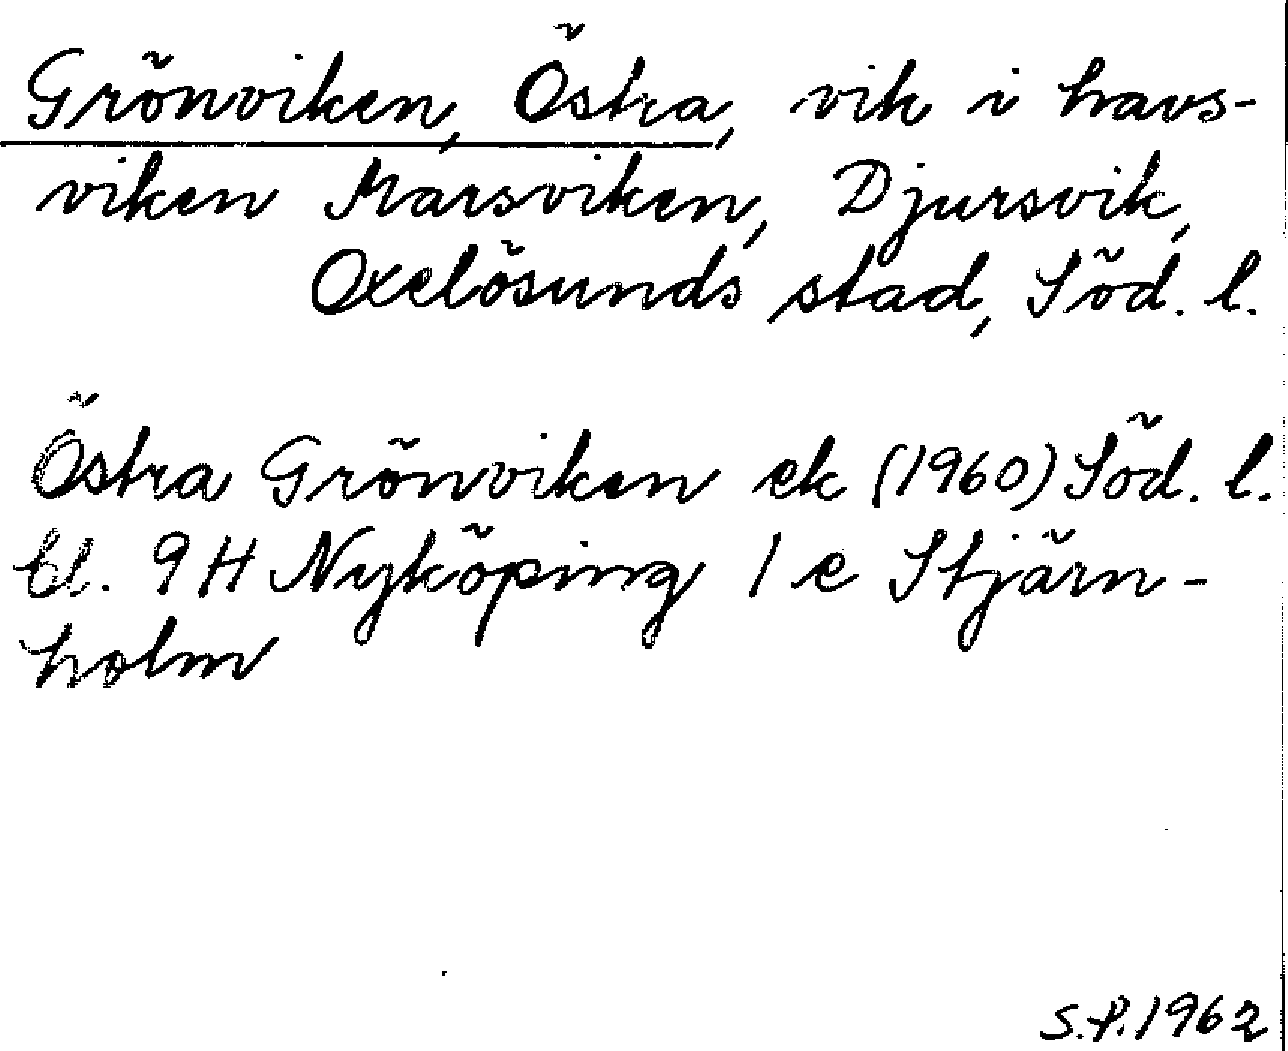 Grönviken, Östra, vik i havs-
viken Marsviken, Djursvik,
Oxelösunds stad, Söd. l.
Östra Grönviken ek (1960) Söd. l.
bl. 9 H Nyköping 1 e Stjärn-
holm
S.P. 1962